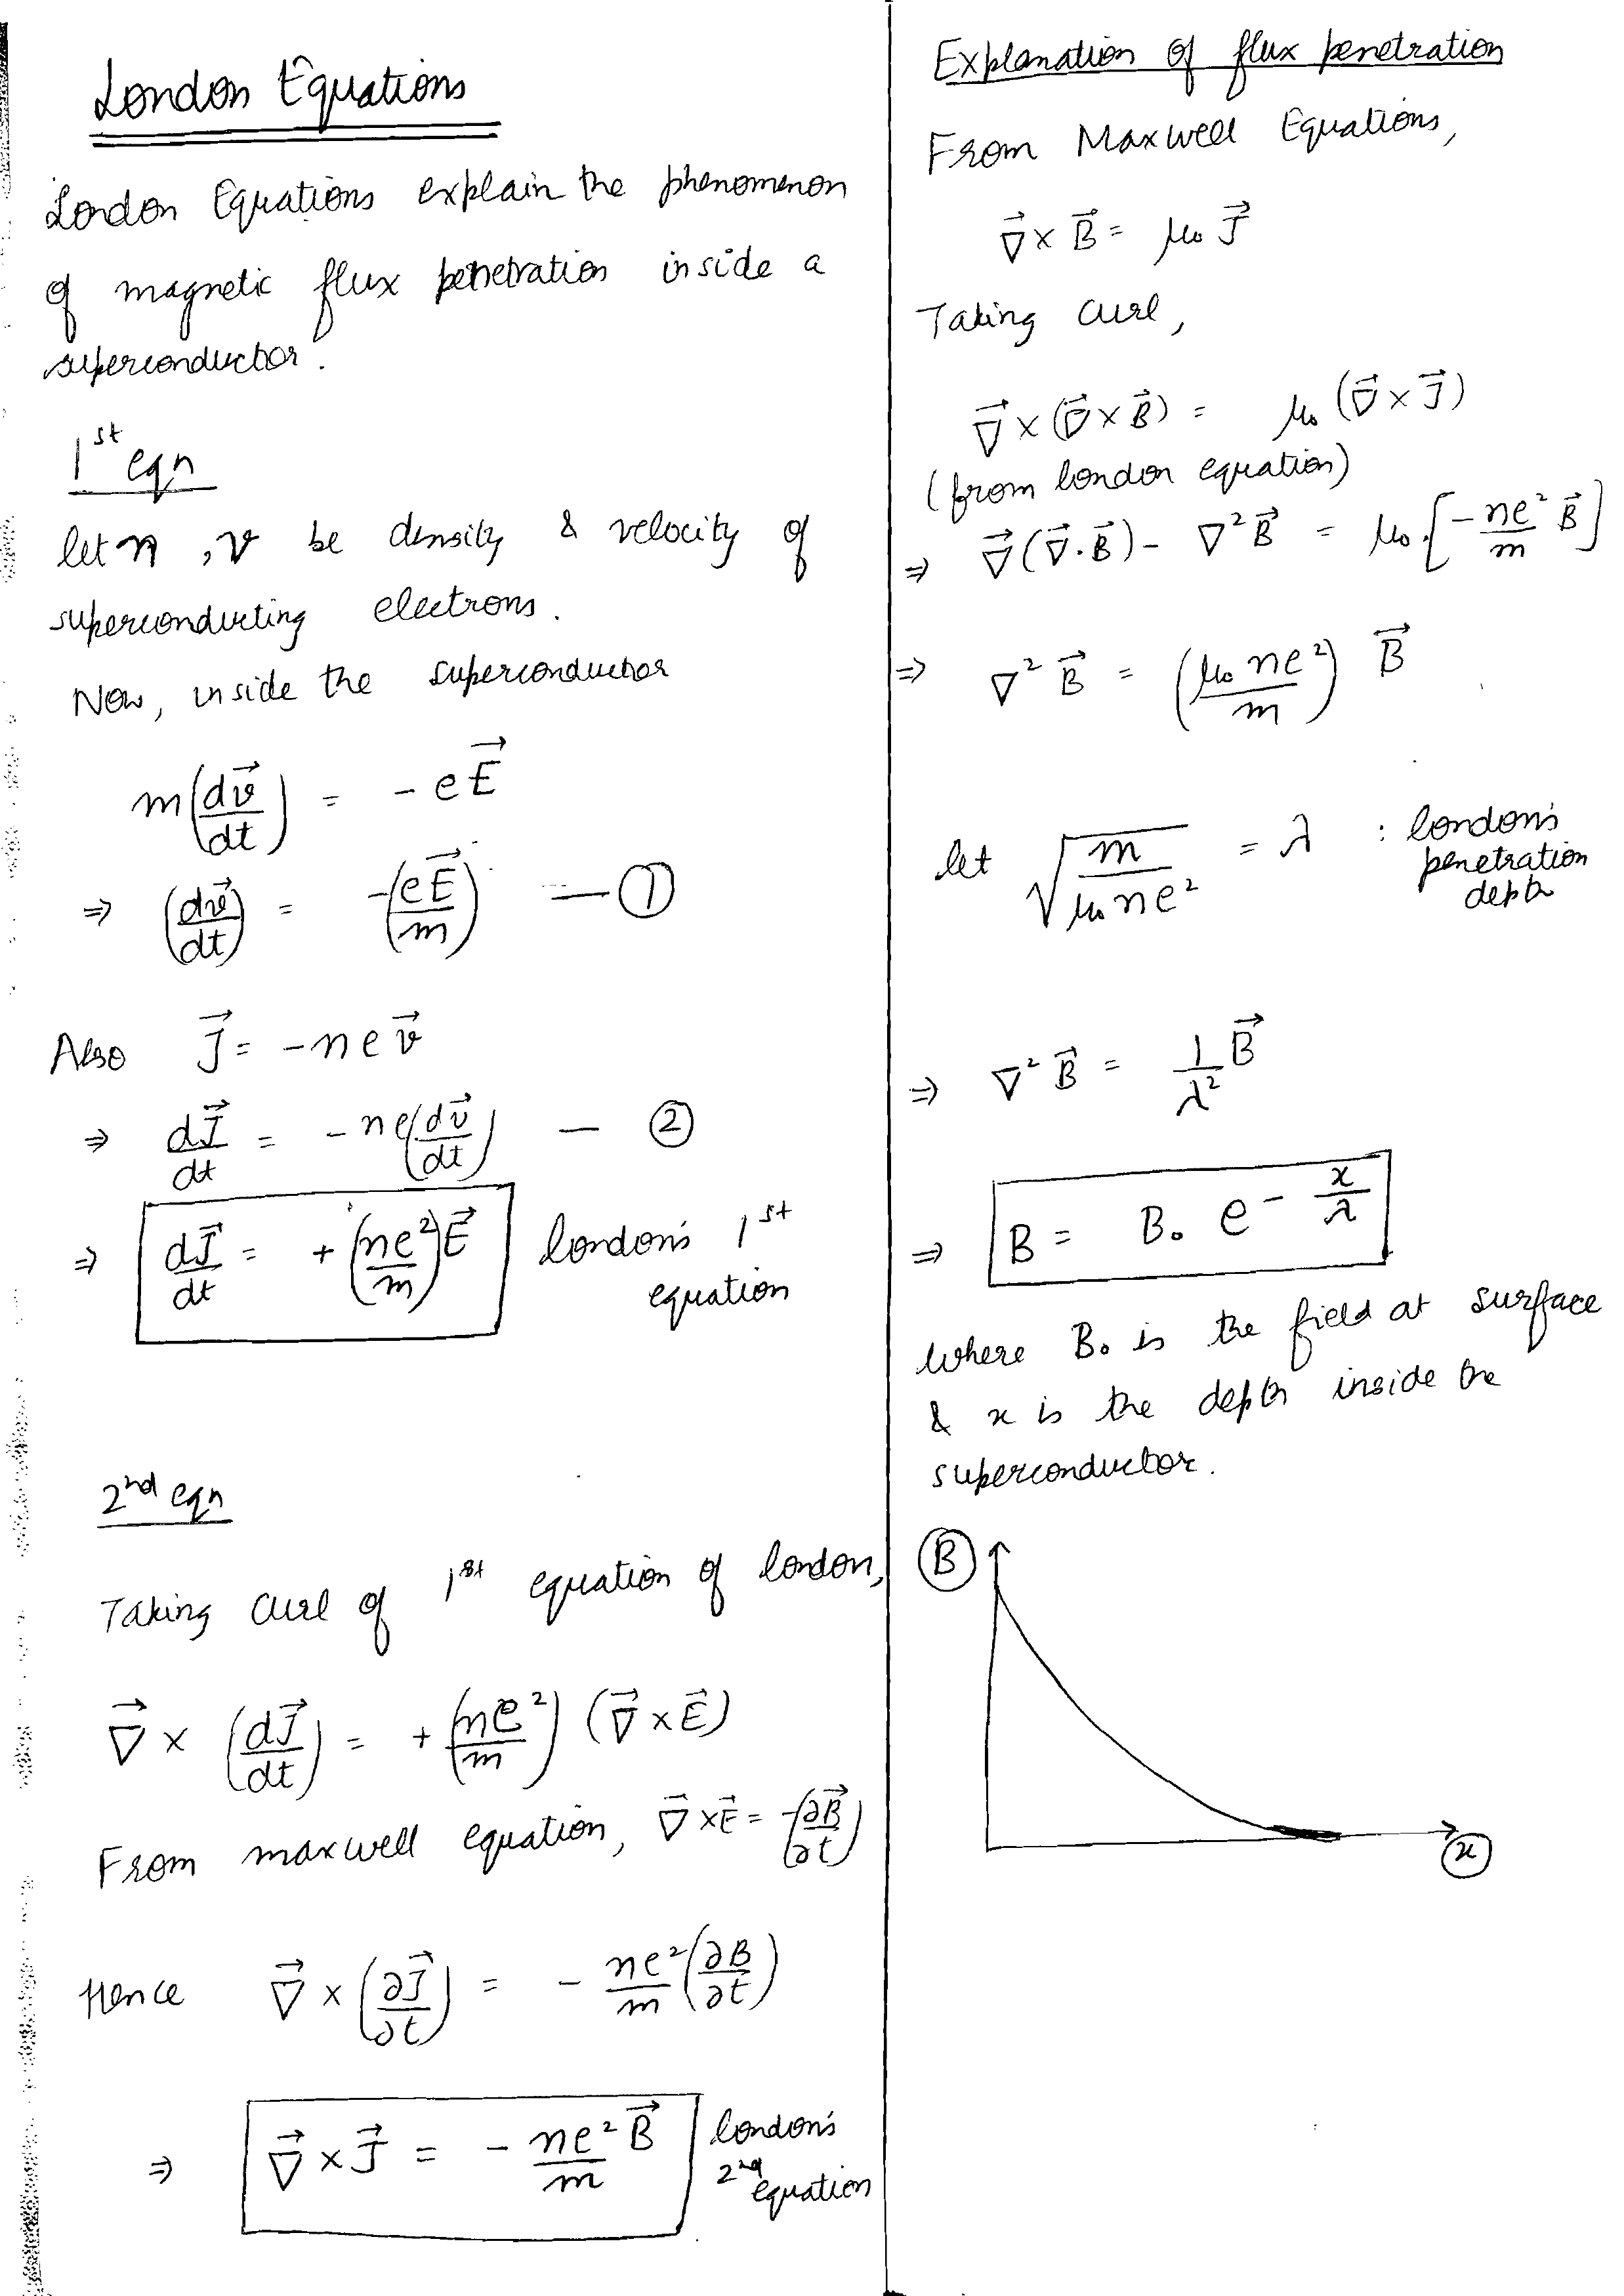 London Equations
London Equations explain the phenomenon
of magnetic flux penetration inside a
superconductor.
1st eqn
let n, v be density & velocity of
superconducting electrons.
Now, inside the superconductor
m(dv⃗/dt) = -eE⃗
⇒ (dv⃗/dt) = -(eE⃗/m) — ①
Also J⃗ = -nev⃗
⇒ dJ⃗/dt = -ne(dv⃗/dt) — ②
⇒ dJ⃗/dt = +(ne²/m)E⃗ london's 1st
equation
2nd eqn
Taking curl of 1st equation of london,
∇⃗ × (dJ⃗/dt) = +(ne²/m) (∇⃗ × E⃗)
From maxwell equation, ∇⃗ × E⃗ = -(∂B⃗/∂t)
Hence ∇⃗ × (∂J⃗/∂t) = - ne²/m (∂B/∂t)
⇒ ∇⃗ × J⃗ = - ne²/m B⃗ london's
2nd equation
Explanation of flux penetration
From Maxwell Equations,
∇⃗ × B⃗ = μ₀ J⃗
Taking curl,
∇⃗ × (∇⃗ × B⃗) = μ₀ (∇⃗ × J⃗)
(from london equation)
⇒ ∇⃗(∇⃗·B⃗) - ∇²B⃗ = μ₀·[-ne²/m B⃗]
⇒ ∇²B⃗ = (μ₀ne²/m) B⃗
let √(m/μ₀ne²) = λ : london's
penetration
depth
⇒ ∇²B⃗ = 1/λ² B⃗
⇒ B = B₀ e^(-x/λ)
where B₀ is the field at surface
& x is the depth inside the
superconductor.
B
x